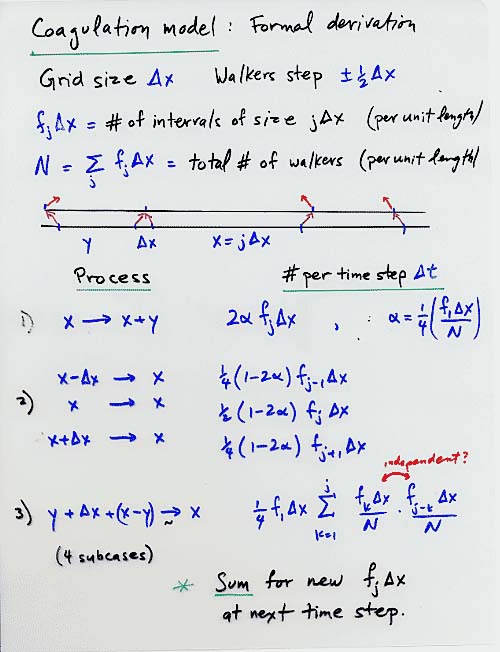 Coagulation model : Formal derivation
Grid size Δx Walkers step ±½Δx
f_jΔx = # of intervals of size jΔx (per unit length)
N = Σ_j f_jΔx = total # of walkers (per unit length)
y Δx x=jΔx
Process # per time step Δt
1) x → x+y 2α f_jΔx , : α = ¼(f₁Δx/N)
x-Δx → x ¼(1-2α) f_{j-1}Δx
2) x → x ½(1-2α) f_jΔx
x+Δx → x ¼(1-2α) f_{j+1}Δx
independent?
3) y+Δx+(x-y) →~ x ¼ f₁Δx Σ_{k=1}^{j} f_kΔx/N · f_{j-k}Δx/N
(4 subcases)
* Sum for new f_jΔx
at next time step.